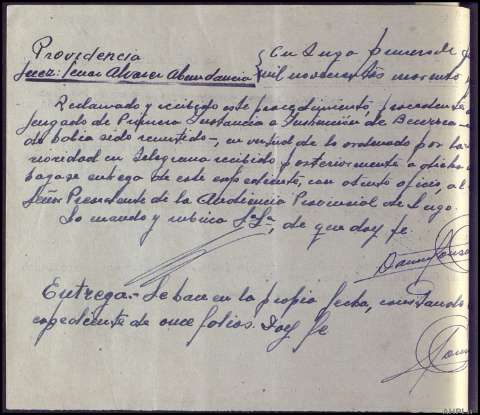 Providencia
Juez: Señor Alvarez Abundancia
En Lugo primero de
mil novecientos noventa
Reclamado y recibido este procedimiento, procedente
Juzgado de Primera Instancia e Instrucción de Becerreá
do había sido remitido-, en virtud de lo ordenado por la
noridad en telegrama recibido posteriormente a dicho
hagase entrega de este expediente, con atento oficio, al
Señor Presidente de la Audiencia Provincial de Lugo.
Lo mando y rubrica Sª Sª, de que doy fe.
Entrega.- Se hace en la propia fecha, constando
expediente de once folios. Doy fe